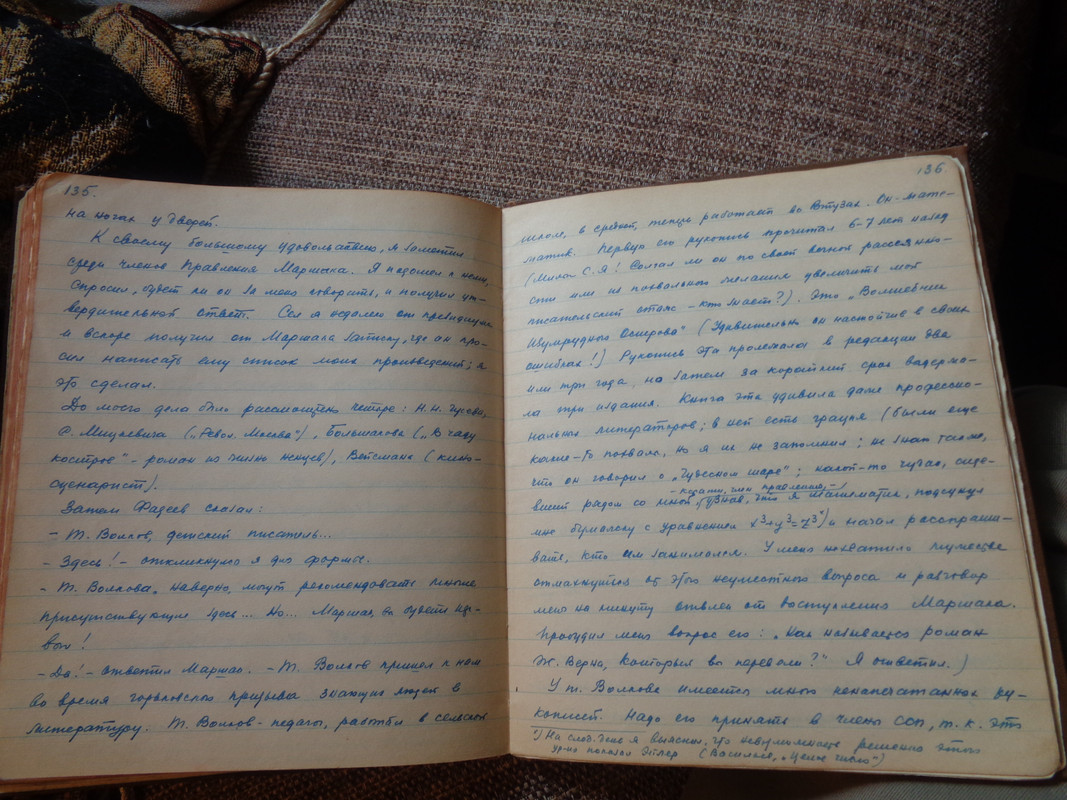 135.
на ногах у дверей.
К своему большому удовольствию, я заметил
среди членов Правления Маршака. Я подошел к нему,
спросил, будет ли он за меня говорить, и получил ут-
вердительный ответ. Сел я недалеко от президиума
и вскоре получил от Маршака записку, где он про-
сил написать ему список моих произведений; я
это сделал.
До моего дела было рассмотрено четыре: Н.Н.
С. Мицкевича („Револ. Москва“), Большакова („В чаду
костров“ - роман из жизни ненцев), Вейсмана (кино-
сценарист).
Затем Фадеев сказал:
- Т. Волков, детский писатель...
- Здесь! - откликнулся я для формы.
- Т. Волкова, наверно, могут рекомендовать многие
присутствующие здесь... Но... Маршак, вы будете пер-
вым!
- Да! - ответил Маршак. - Т. Волков пришел к нам
во время горьковского призыва знающих людей в
литературу. Т. Волков - педагог, работал в сельской
136
школе, в средней, теперь работает во Втузах. Он - мате-
матик. Первую его рукопись прочитал 6-7 лет назад
(Милый С.Я! Солгал ли он по своей вечной рассеянно-
сти или из похвального желания увеличить мой
писательский стаж - кто знает?). Это „Волшебник
Изумрудного Острова“ (Удивительно он настойчив в своих
ошибках!) Рукопись эта пролежала в редакции два
или три года, но затем за короткий срок выдержа-
ла три издания. Книга эта удивила даже профессио-
нальных литераторов; в ней есть грация (были еще
какие-то похвалы, но я их не запомнил; не знаю также,
что он говорил о „Чудесном шаре“; какой-то чудак, сидев-
ший рядом со мной - кстати, член правления, - узнав, что я математик, подсунул
мне бумажку с уравнением x³+y³=z³*) и начал расспраши-
вать, кто им занимался. У меня не хватило мужества
отмахнуться от этого неуместного вопроса и разговор
меня на минуту отвлек от выступления Маршака.
Пробудил меня вопрос его: „Как называется роман
Ж. Верна, который вы перевели?“ Я ответил.)
У т. Волкова имеется много ненапечатанных ру-
кописей. Надо его принять в члены ССП, т.к. это
*) На след. день я выяснил, что невозможность решения этого
ур-ия показал Эйлер (Васильев, „Целое число“)